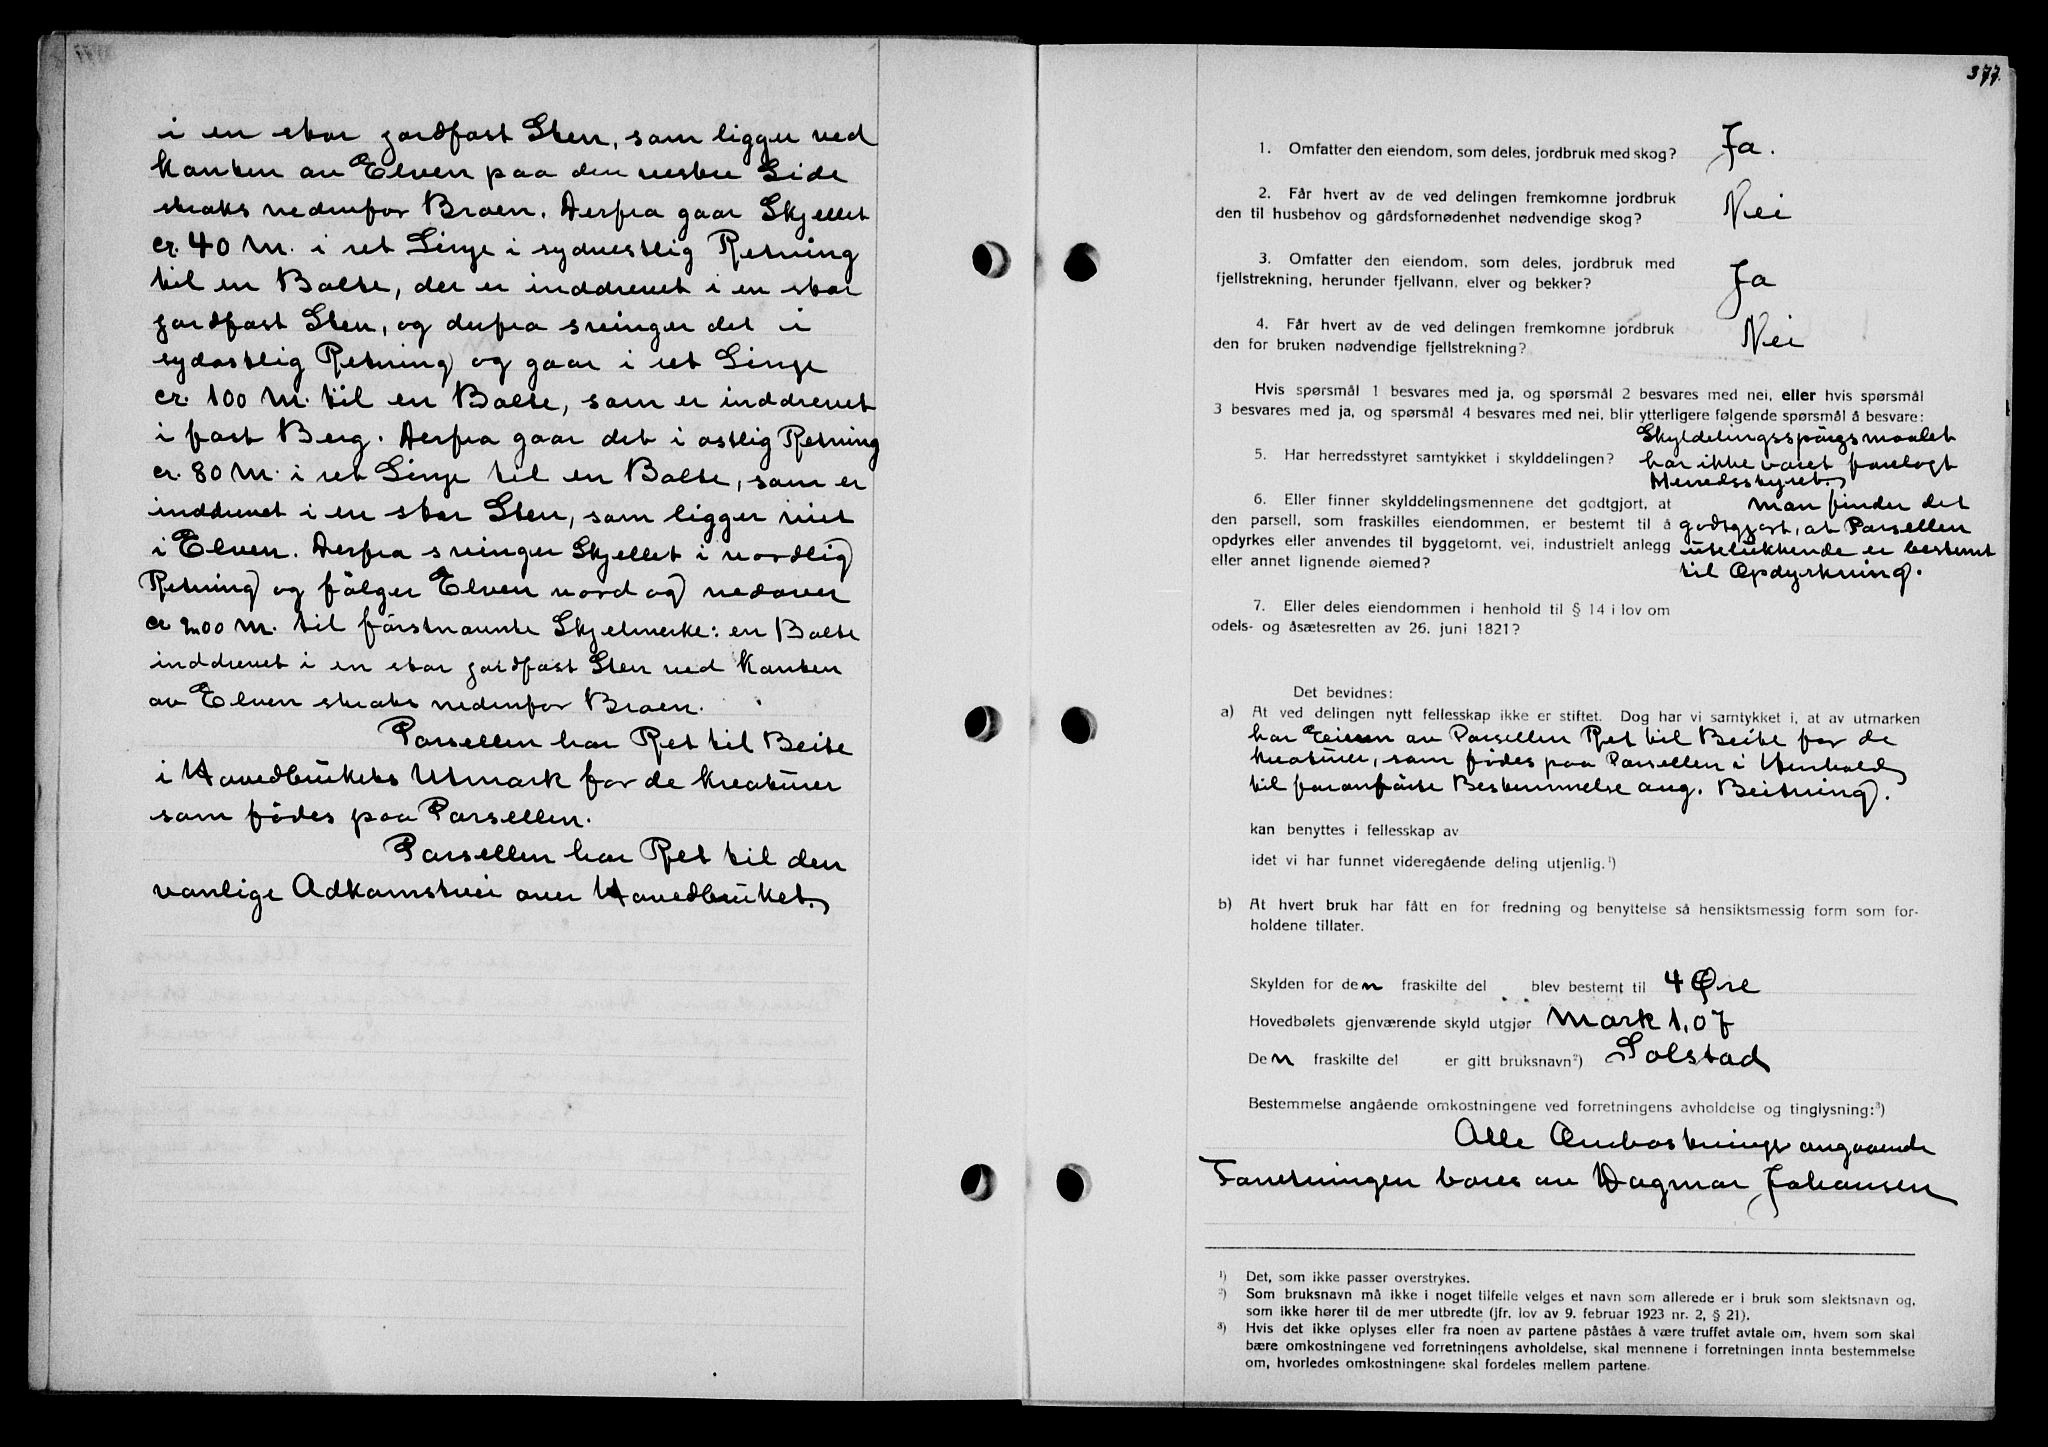 i en stor jordfast Sten, som ligger ved
Kanten av Elven paa den vestre Side
straks nedenfor Broen. Derfra gaar Skjellet
cr. 40 M. i ret Linje i sydvestlig Retning
til en Bolte, der er inddrevet i en stor
jordfast Sten, og derfra svinger det i
sydostlig Retning og gaar i ret Linje
cr. 100 M. til en Bolte, som er inddrevet
i fast Berg. Derfra gaar det i ostlig Retning
cr. 80 M. i ret Linje til en Bolte, som er
inddrevet i en stor Sten, som ligger midt
i Elven. Derfra svinger Skjellet i nordlig
Retning og følger Elven nord og nedover
cr 200 M. til førstnævnte Skjelmerke: en Bolte
inddrevet i en stor jordfast Sten ved Kanten
av Elven straks nedenfor Broen.
Parsellen har Ret til Beite
i Hovedbrukets Utmark for de Kreaturer
som fødes paa Parsellen.
Parsellen har Ret til den
vanlige Adkomstvei over Hovedbruket.
377.
1. Omfatter den eiendom, som deles, jordbruk med skog? Ja.
2. Får hvert av de ved delingen fremkomne jordbruk
den til husbehov og gårdsfornødenhet nødvendige skog? Nei
3. Omfatter den eiendom, som deles, jordbruk med
fjellstrekning, herunder fjellvann, elver og bekker? Ja
4. Får hvert av de ved delingen fremkomne jordbruk
den for bruken nødvendige fjellstrekning? Nei
Hvis spørsmål 1 besvares med ja, og spørsmål 2 besvares med nei, eller hvis spørsmål
3 besvares med ja, og spørsmål 4 besvares med nei, blir ytterligere følgende spørsmål å besvare:
5. Har herredsstyret samtykket i skylddelingen? Skyldelingsspørgsmaalet
har ikke været forelagt
Herredsstyret.
6. Eller finner skylddelingsmennene det godtgjort, at
den parsell, som fraskilles eiendommen, er bestemt til å
opdyrkes eller anvendes til byggetomt, vei, industrielt anlegg
eller annet lignende øiemed?
Man finder det
godtgjort, at Parsellen
utelukkende er bestemt
til Opdyrkning.
7. Eller deles eiendommen i henhold til § 14 i lov om
odels- og åsætesretten av 26. juni 1821?
Det bevidnes:
a) At ved delingen nytt fellesskap ikke er stiftet. Dog har vi samtykket i, at av utmarken
har Eieren av Parsellen Ret til Beite for de
Kreaturer, som fødes paa Parsellen i Henhold
til foranførte Bestemmelse ang. Beitning.
kan benyttes i fellesskap av
idet vi har funnet videregående deling utjenlig.¹)
b) At hvert bruk har fått en for fredning og benyttelse så hensiktsmessig form som for-
holdene tillater.
Skylden for den fraskilte del blev bestemt til 4 Øre
Hovedbølets gjenværende skyld utgjør Mark 1,07
Den fraskilte del er gitt bruksnavn²) Solstad
Bestemmelse angående omkostningene ved forretningens avholdelse og tinglysning:³)
Alle Omkostninger angaaende
Forretningen bæres av Dagmar Johansen
¹) Det, som ikke passer overstrykes.
²) Som bruksnavn må ikke i noget tilfelle velges et navn som allerede er i bruk som slektsnavn og,
som ikke hører til de mer utbredte (jfr. lov av 9. februar 1923 nr. 2, § 21).
³) Hvis det ikke oplyses eller fra noen av partene påståes å være truffet avtale om, hvem som skal
bære omkostningene ved forretningens avholdelse, skal mennene i forretningen innta bestemmelse
om, hvorledes omkostningene skal fordeles mellem partene.